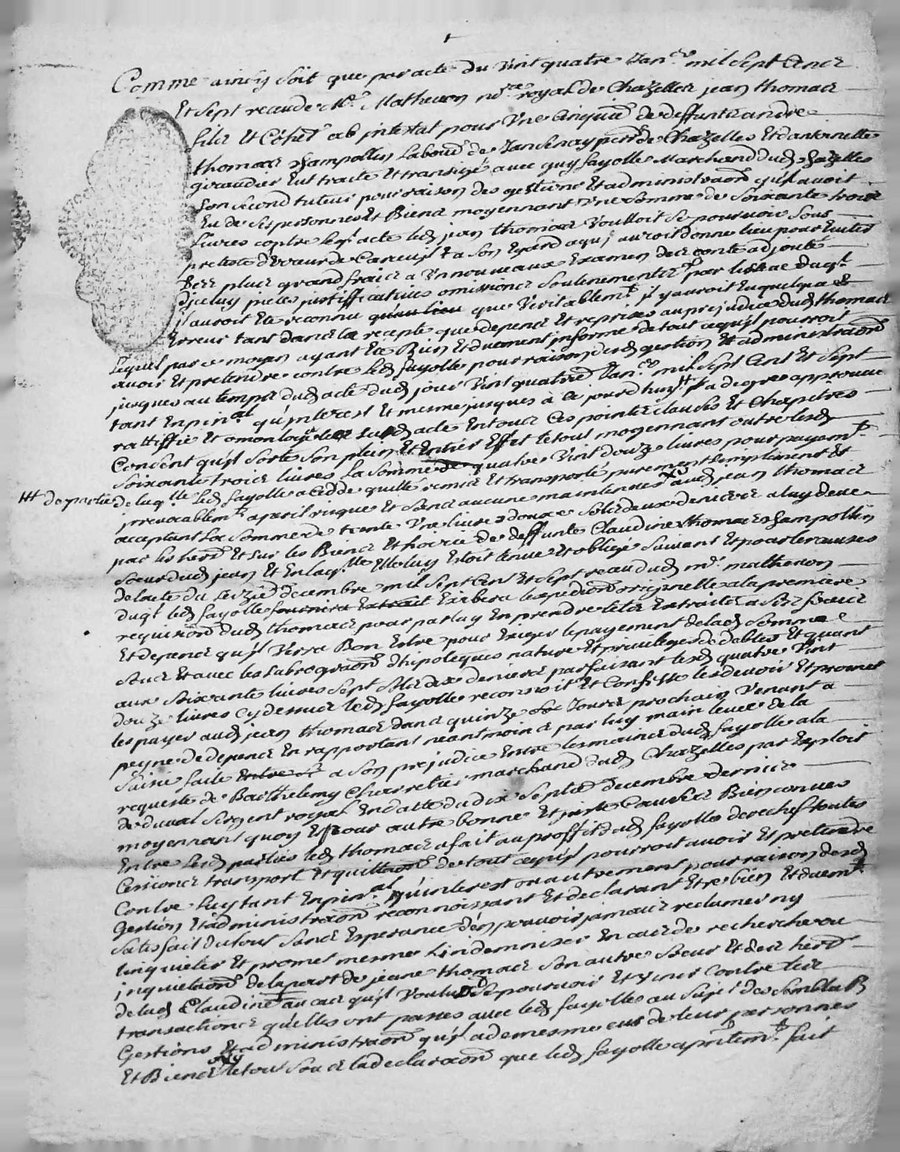 Comme ainsy soit que par acte du vint quatre Janvr mil sept cents
Et sept receu de Me Mathevon nore royal de Chazelles jean thomas
fils et Cohér ab intestat pour une cinquie de deffunts andre
thomas champollin Labour de Jansenay pnsse de Chazelles Et dantoinette
giraudier Eut traité Et transigé avec guy fayolle Marchand dud Chazelles
son second tuteur pour raison des gestions Et administraon qu'il avoit
Eu de ses personnes Et Biens moyennant une somme de soixante trois
livres contre leql acte led jean thomas voulloit se pourvoir sous
preteste d'Erreur de Calcul a son Egard a quj auroit donne lieu pour Eviter
des plus grands fraix a un nouveau Examen des conte adjouté
djceluy pieces justifficatives omissions soulenements par lissue duql
jl auroit Eté reconnu que veritablemt jl y auroit Eu quelques
Erreurs tant dans la recepte que depence Et reprises au prejudice dud thomas
Lequel par ce moyen ayant Eté Bien Et duement informe de tout ce qu'jl pourroit
avoir Et pretendre contre led fayolle pour raison desd gestion Et administraons
jusques au temps dud acte dud jour vint quatre Janvr mil sept Cent Et sept
tant En pinal qu'interest Et mesme jusques à ce jourdhuy jl a de gré approuvé
rattiffié Et omologué led acte En tous ces points clauses Et Chapitres
Consent qu'jl sorte son plein Et Entier Effet le tout moyennant outre lesd
soixante trois livres la somme de quatre vint douze livres pour payemt
++ de partie de laqlle led fayolle a cédé quitté remis Et transporté purement simplement Et
jrrevocablemt a peril risque Et sans aucune maintenue aud jean thomas
acceptant La somme de trente une livres douze sols deux deniers a luy deue
par les hers Et sur les Biens Et hoirie de deffunte Claudine thomas champollin
sœur dud jean Et En laqlle Elle luy Estoit tenue Et obligé suivant Et pour les causes
de lacte du seizie decembre mil sept Cent Et sept receu dud Me mathevon
duql led fayolle fournira Extrait Exibera lexpedion originelle a la premiere
requision dud thomas pour par luy En prendre telle Extraits a ses fraix
Et depence qu'jl verra Bon Estre pour Exiger le payement de lad somme
avec les subrogaons dhipoteques nature Et privileges de debtes Et quant
aux soixante livres sept sols dix deniers parfaisant lesd quatre vint
douze livres cy dessus led fayolle reconnoit Et Confesse les devoir Et promet
les payer aud jean thomas dans quinze Jours prochain venant a
peyne de depence En rapportant neantmoins par luy main levée de la
saisie faite a son prejudice Entre les mains dud fayolle a la
requeste de Barthelemy Charretier marchand dud Chazelles par Exploit
de duval sergent royal En datte du dix septie decembre dernier
moyennant quoy Et pour autre bonne Et juste Causes Bien connues
Entre lesd parties led thomas a fait au proffit dud fayolle derechef toutes
Cessions transport Et quittance de tout ce qu'jl pourroit avoir Et pretendre
Contre luy tant En pinal qu'interest ou autrement pour raison desd
gestion Et administraon reconnoissant Et declarant Etre bien Et duemt
satisfait du tout sans Esperance d'en pouvoir jamais reclamer ny
linquieter Et promet mesme L'indemniser En cas de recherche ou
jnquietaon de la part de jeane thomas son autre sœur Et des hers
de lad Claudine au cas qu'jl voulu se pourvoir Et venir contre les
transactions quelles ont passés avec led fayolle au sujet des semblab
gestions Et administraon qu'jl a de mesme eus de leurs personnes
Et Biens le tout sous la declaraon que led fayolle a pntemt fait